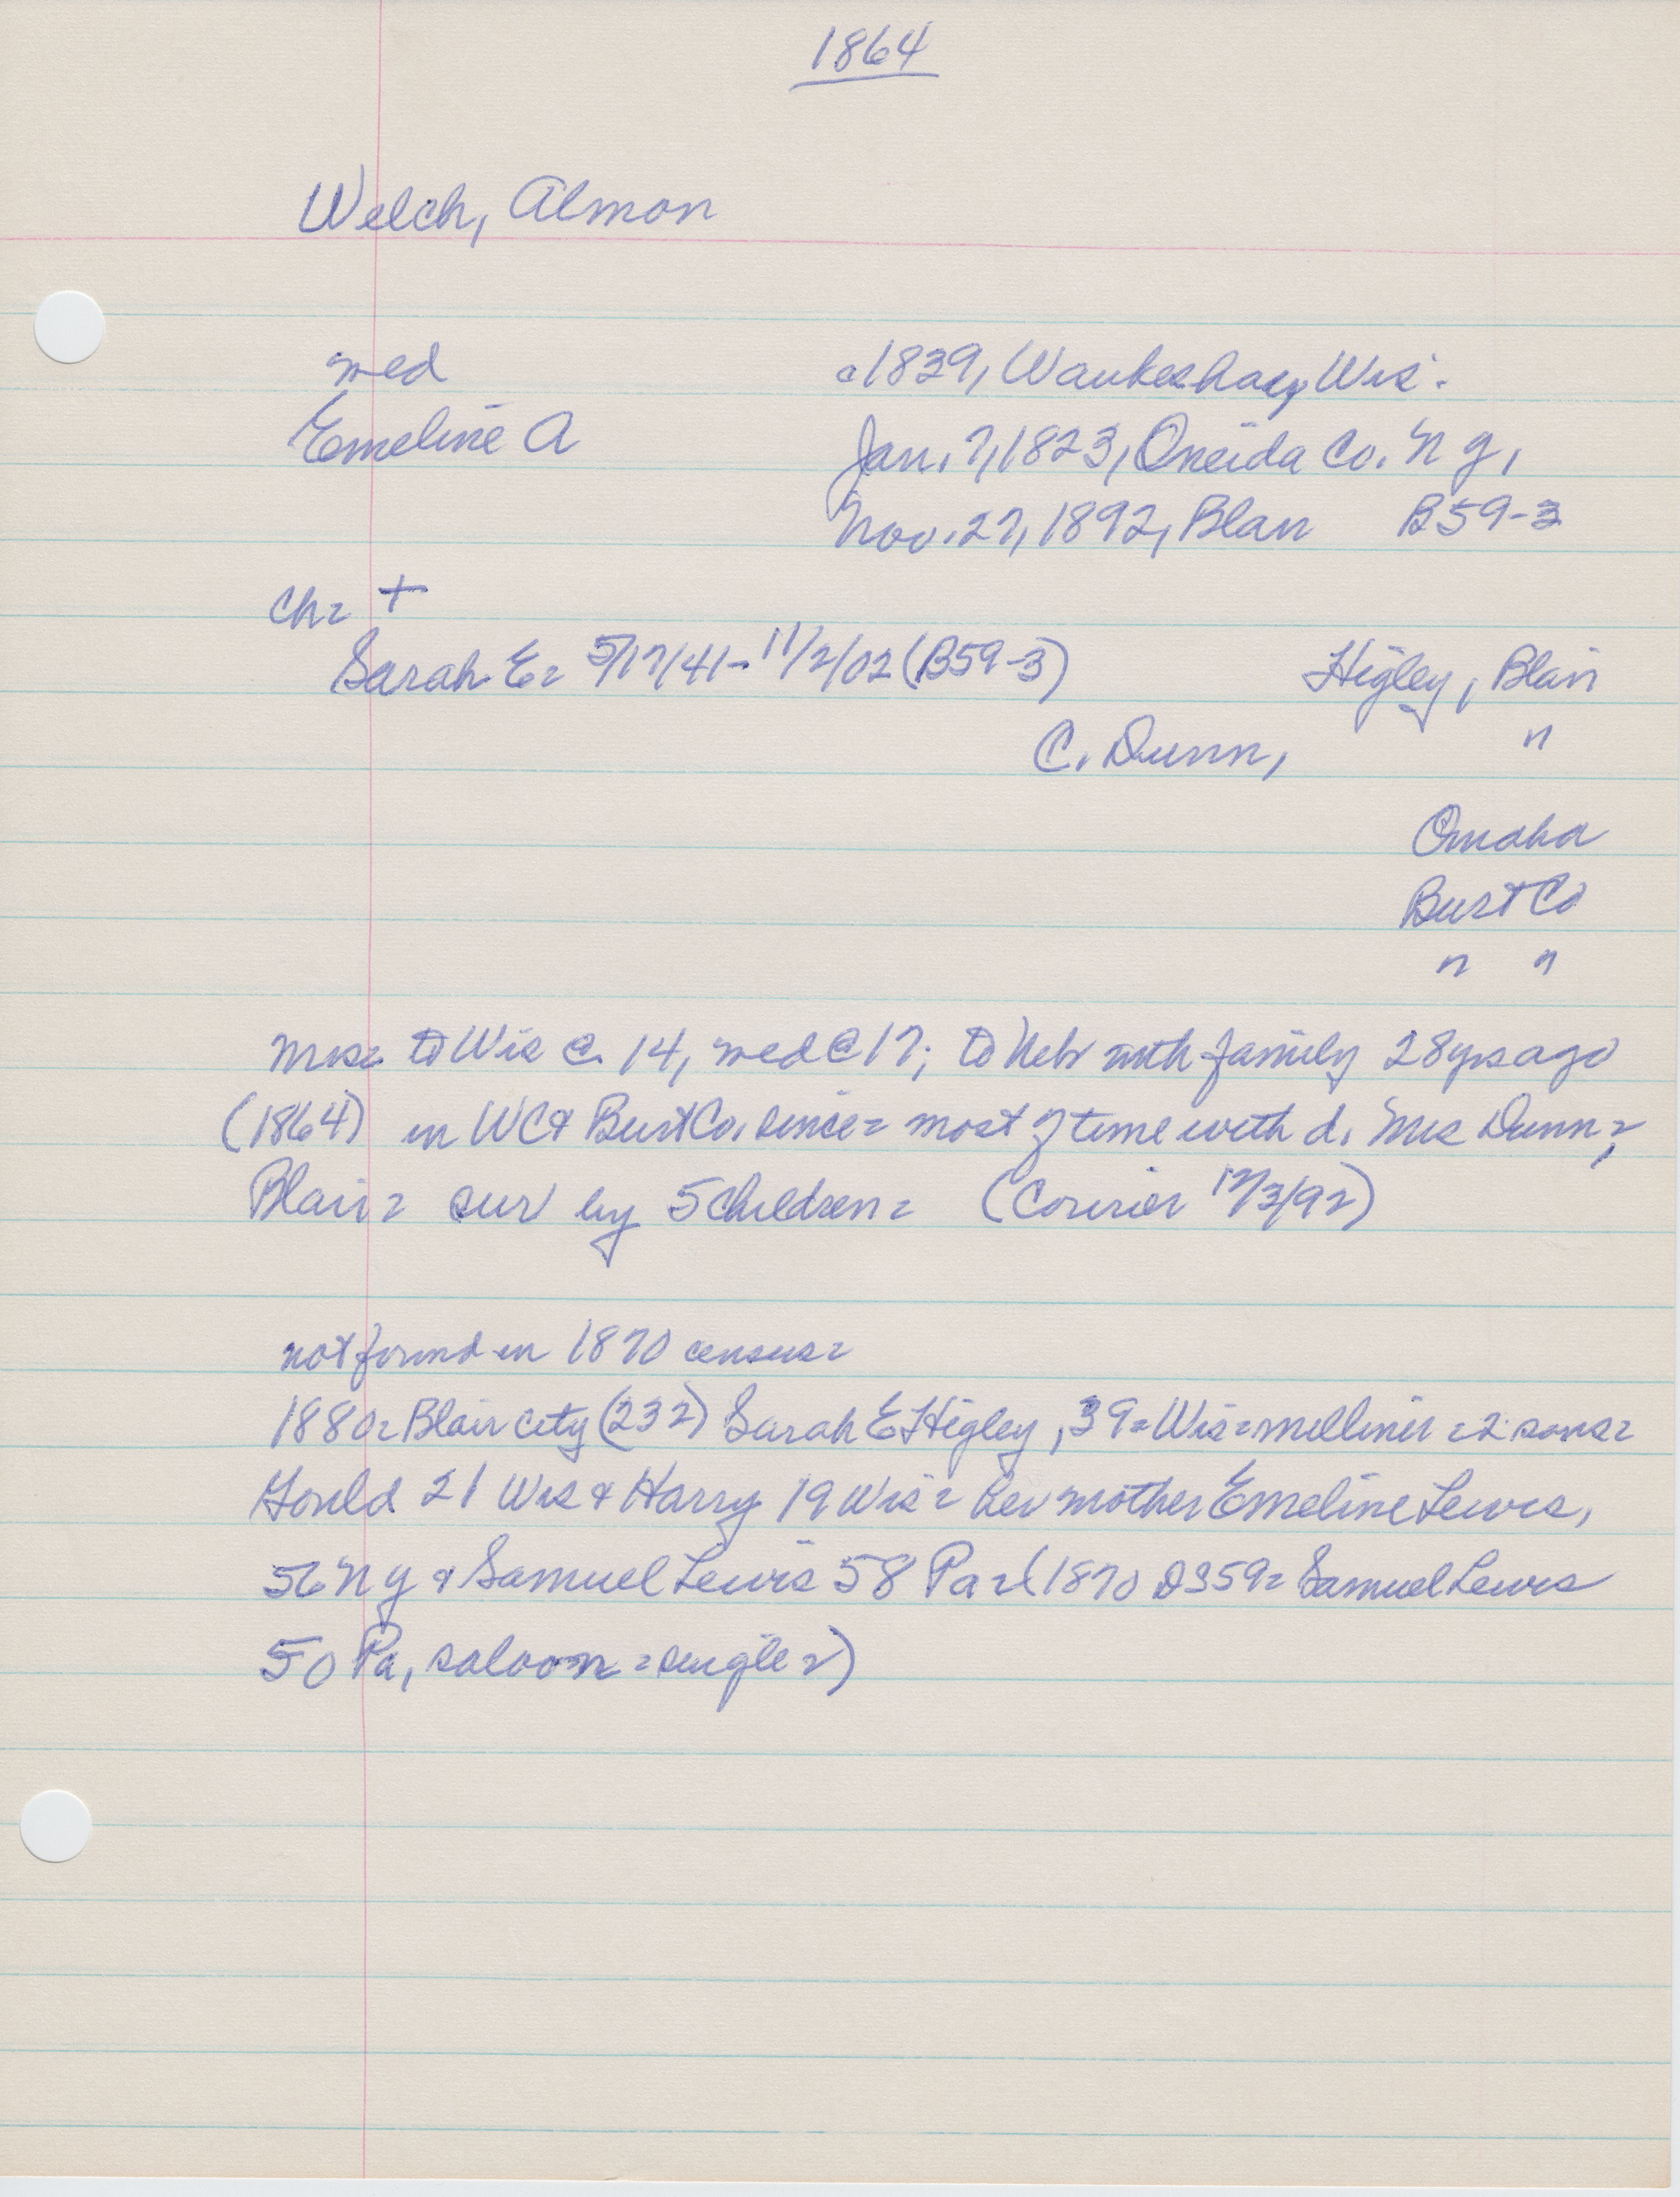 1864
Welch, Almon
med c1839, Waukesha, Wis.
Emeline A Jan. 7, 1823, Oneida Co. N Y,
Nov. 27, 1892, Blair B59-3
Ch= +
Sarah E= 5/17/41-11/2/02 (B59-3) Higley, Blair
C. Dunn, "
Omaha
Burt Co
" "
Mrs= to Wis @ 14, med @ 17; to Nebr with family 28 yrs ago
(1864) in WC & Burt Co. since= most of time with d. Mrs Dunn=,
Blair= sur by 5 children= (Courier 12/3/92)
not found in 1870 census=
1880= Blair city (232) Sarah E Higley, 39=Wis=milliner=2 sons=
Gould 21 Wis & Harry 19 Wis= her mother Emeline Lewis,
56 N Y & Samuel Lewis 58 Pa=(1870 D359= Samuel Lewis
50 Pa, saloon=single=)